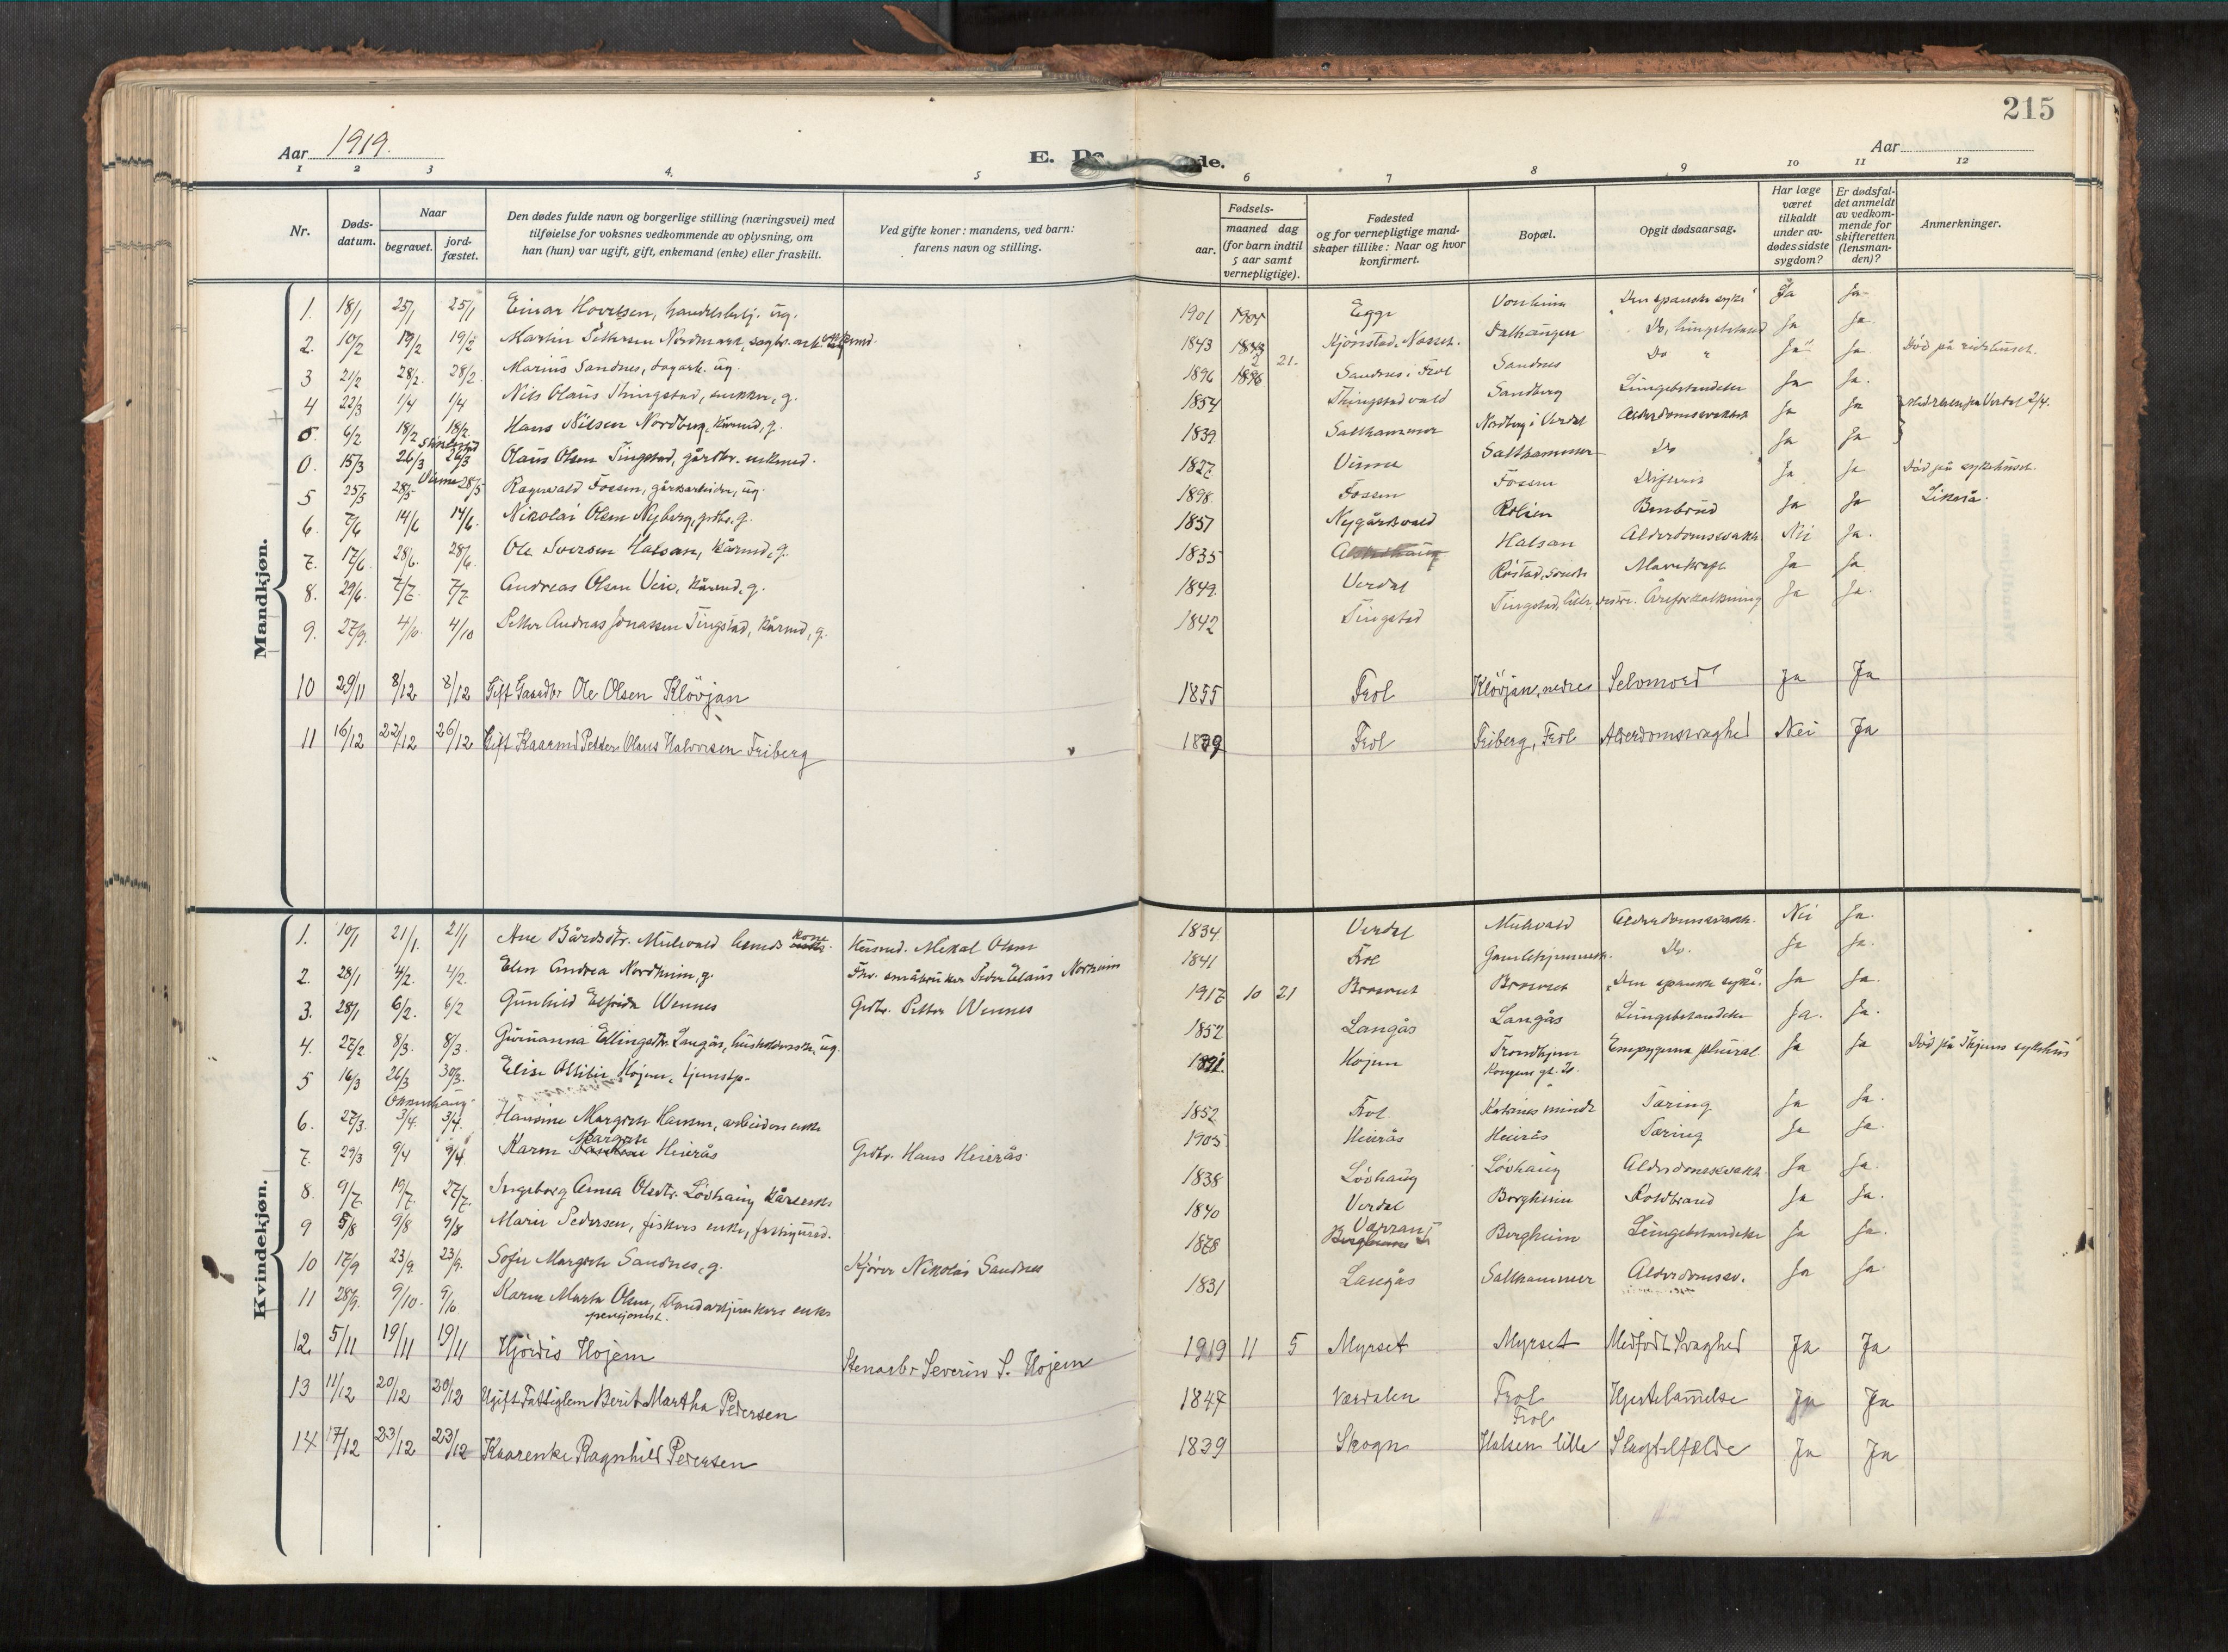 215
Aar 1919.
E. Dø
de.
Aar
1 2 3 4. 5 6 7 8 9 10 11 12
Nr.
Døds-
datum.
Naar
begravet.
jord-
fæstet.
Den dødes fulde navn og borgerlige stilling (næringsvei) med
tilføielse for voksnes vedkommende av oplysning, om
han (hun) var ugift, gift, enkemand (enke) eller fraskilt.
Ved gifte koner: mandens, ved barn:
farens navn og stilling.
Fødsels-
aar.
maaned dag
(for barn indtil
5 aar samt
vernepligtige).
Fødested
og for vernepligtige mand-
skaper tillike: Naar og hvor
konfirmert.
Bopæl.
Opgit dødsaarsag.
Har læge
været
tilkaldt
under av-
dødes sidste
sygdom?
Er dødsfal-
det anmeldt
av vedkom-
mende for
skifteretten
(lensman-
den)?
Anmerkninger.
Mandkjøn.
1. 18/1 25/1 25/1 Einar Hovelsen, handelsbetj. ug. 1901 1901 Egge "Den spanske syke" Ja Ja
2. 10/2 19/2 19/2 Martin Petersen Nordmark, sagbr. arb. 1843 1843 Do, Ja Ja.
3 21/2 28/2. 28/2. Marius Sandnes, dagarb. ug. 1896 1896 2 21. Sandnes i Frol Sandnes Do " Ja Ja Død på sykehuset.
4 22/3 1/4 1/4 Nils Olaus Thingstad, snekker, g. 1854 Thingstadvald Sandberg Lungebetændelse Ja Ja.
0. 6/2 18/2 18/2. Hans Nilsen Nordberg, kårmd, g. 1839 Salthammer Nordberg i Verdal Alderdomssvakhet Ja Ja
0. 15/3 26/3 26/3 Olaus Olsen Tingstad, gårdbr. enkemd. 1827 Vinne Salthammer Do Ja Ja
5 25/5 28/5 Vinne 28/5 Ragnvald Fossen, gårdsarbeider, ug. 1898 Fossen Fossen Difterit Ja Ja Død på sykehuset.
6. 7/6 14/6 14/6. Nikolai Olsen Nyberg, grdbr. g. 1857 Nygårdsvald Benbrud Ja Ja
7. 17/6 28/6. 28/6. Ole Iversen Halsan, kårmd, g. 1835 Halsan Alderdomssvakh Nei Ja.
8. 29/6. 7/7. 7/7 Andreas Olsen Veie, kårmd, g. 1849. Verdal Røstad, søndre Mavekræft Ja Ja
9. 27/9. 4/10. 4/10 Petter Andreas Jonassen Tingstad, kårmd, g. 1842 Tingstad Tingstad, lille, vestre. Åreforkalkning Ja Ja.
10 29/11 8/12 8/12 Gift Gaardbr Ole Olsen Klövjan 1855 Frol Klövjan, nedres Selvmord Ja Ja
11 16/12 22/12 26/12 Gift Kaarmd Petter Olaus Halvorsen Friberg 1839 Frol Friberg, Frol Alderdomssvaghed Nei Ja
Kvindekjøn.
1. 10/1 21/1. 21/1 Ane Bårdsdtr. Mulvald kone Husmd. Mikal Olsen 1834. Verdal Mulvald Alderdomssvakh. Nei Ja.
2. 28/1 4/2. 4/2. Elen Andrea Nordheim, g. Fhv. småbruker Peder Elaus Nordheim 1841 Frol Do. Ja Ja.
3. 28/1 6/2. 6/2 Gunhild Elfrida Wennes Grdbr. Petter Wennes 1917 10 21 "Den spanske syke". Ja Ja.
4. 27/2 8/3. 8/3. Ellingsdtr. Langås, husholderske, ug. 1852 Langås Langås Lungebetændelse Ja. Ja.
5 16/3 26/3 30/3. Elise Ottilie Hojem, tjenstp. Hojem Trondhjem Kongens gt. Empyema pleural Ja Ja Død på Thjems sykehus
6. 27/3. 3/4. 3/4. Hansine Margrete Hansen, arbeiders enke 1852 Frol Katrines minde Tæring Ja Ja.
7. 29/3 9/4 9/4. Karen Margrete Heierås Grdbr. Hans Heierås 1905 Heierås Heierås Tæring Ja Ja.
8. 9/7. 19/7. 27/7. Ingeborg Anna Olsdtr. Løvhaug kårenke 1838 Løvhaug Løvhaug Alderdomssvakh Ja Ja.
9 5/8 9/8 9/8 Marie Pedersen, fiskers enke, 1840 Verdal Borgheim Koldbrand Ja Ja.
10 17/9 23/9. 23/9. Sofie Margrete Sandnes, g. Kjører Nikolai Sandnes 1878 Værran Borgheim Lungebetændelse Ja Ja.
11 28/9. 9/10. 9/10. Karen Marta Olsen, standartjunkers enke pensjonist. 1831 Langås Salthammer Alderdomssv. Ja Ja
12. 5/11 19/11 19/11 Hjördis Hojem Stenarbr Severin S. Hojem 1919 11 5 Myrset Myrset Medfødt Svaghed Ja Ja
13 11/12 20/12 20/12 Ugift Fattiglem Berit Martha Pedersen 1847 Værdalen Frol Hjertelamelse Ja Ja
14 17/12 23/12 23/12 Kaarenke Ragnhild Pedersen 1839 Skogn Frol Halsen lille Slagtilfælde Ja Ja